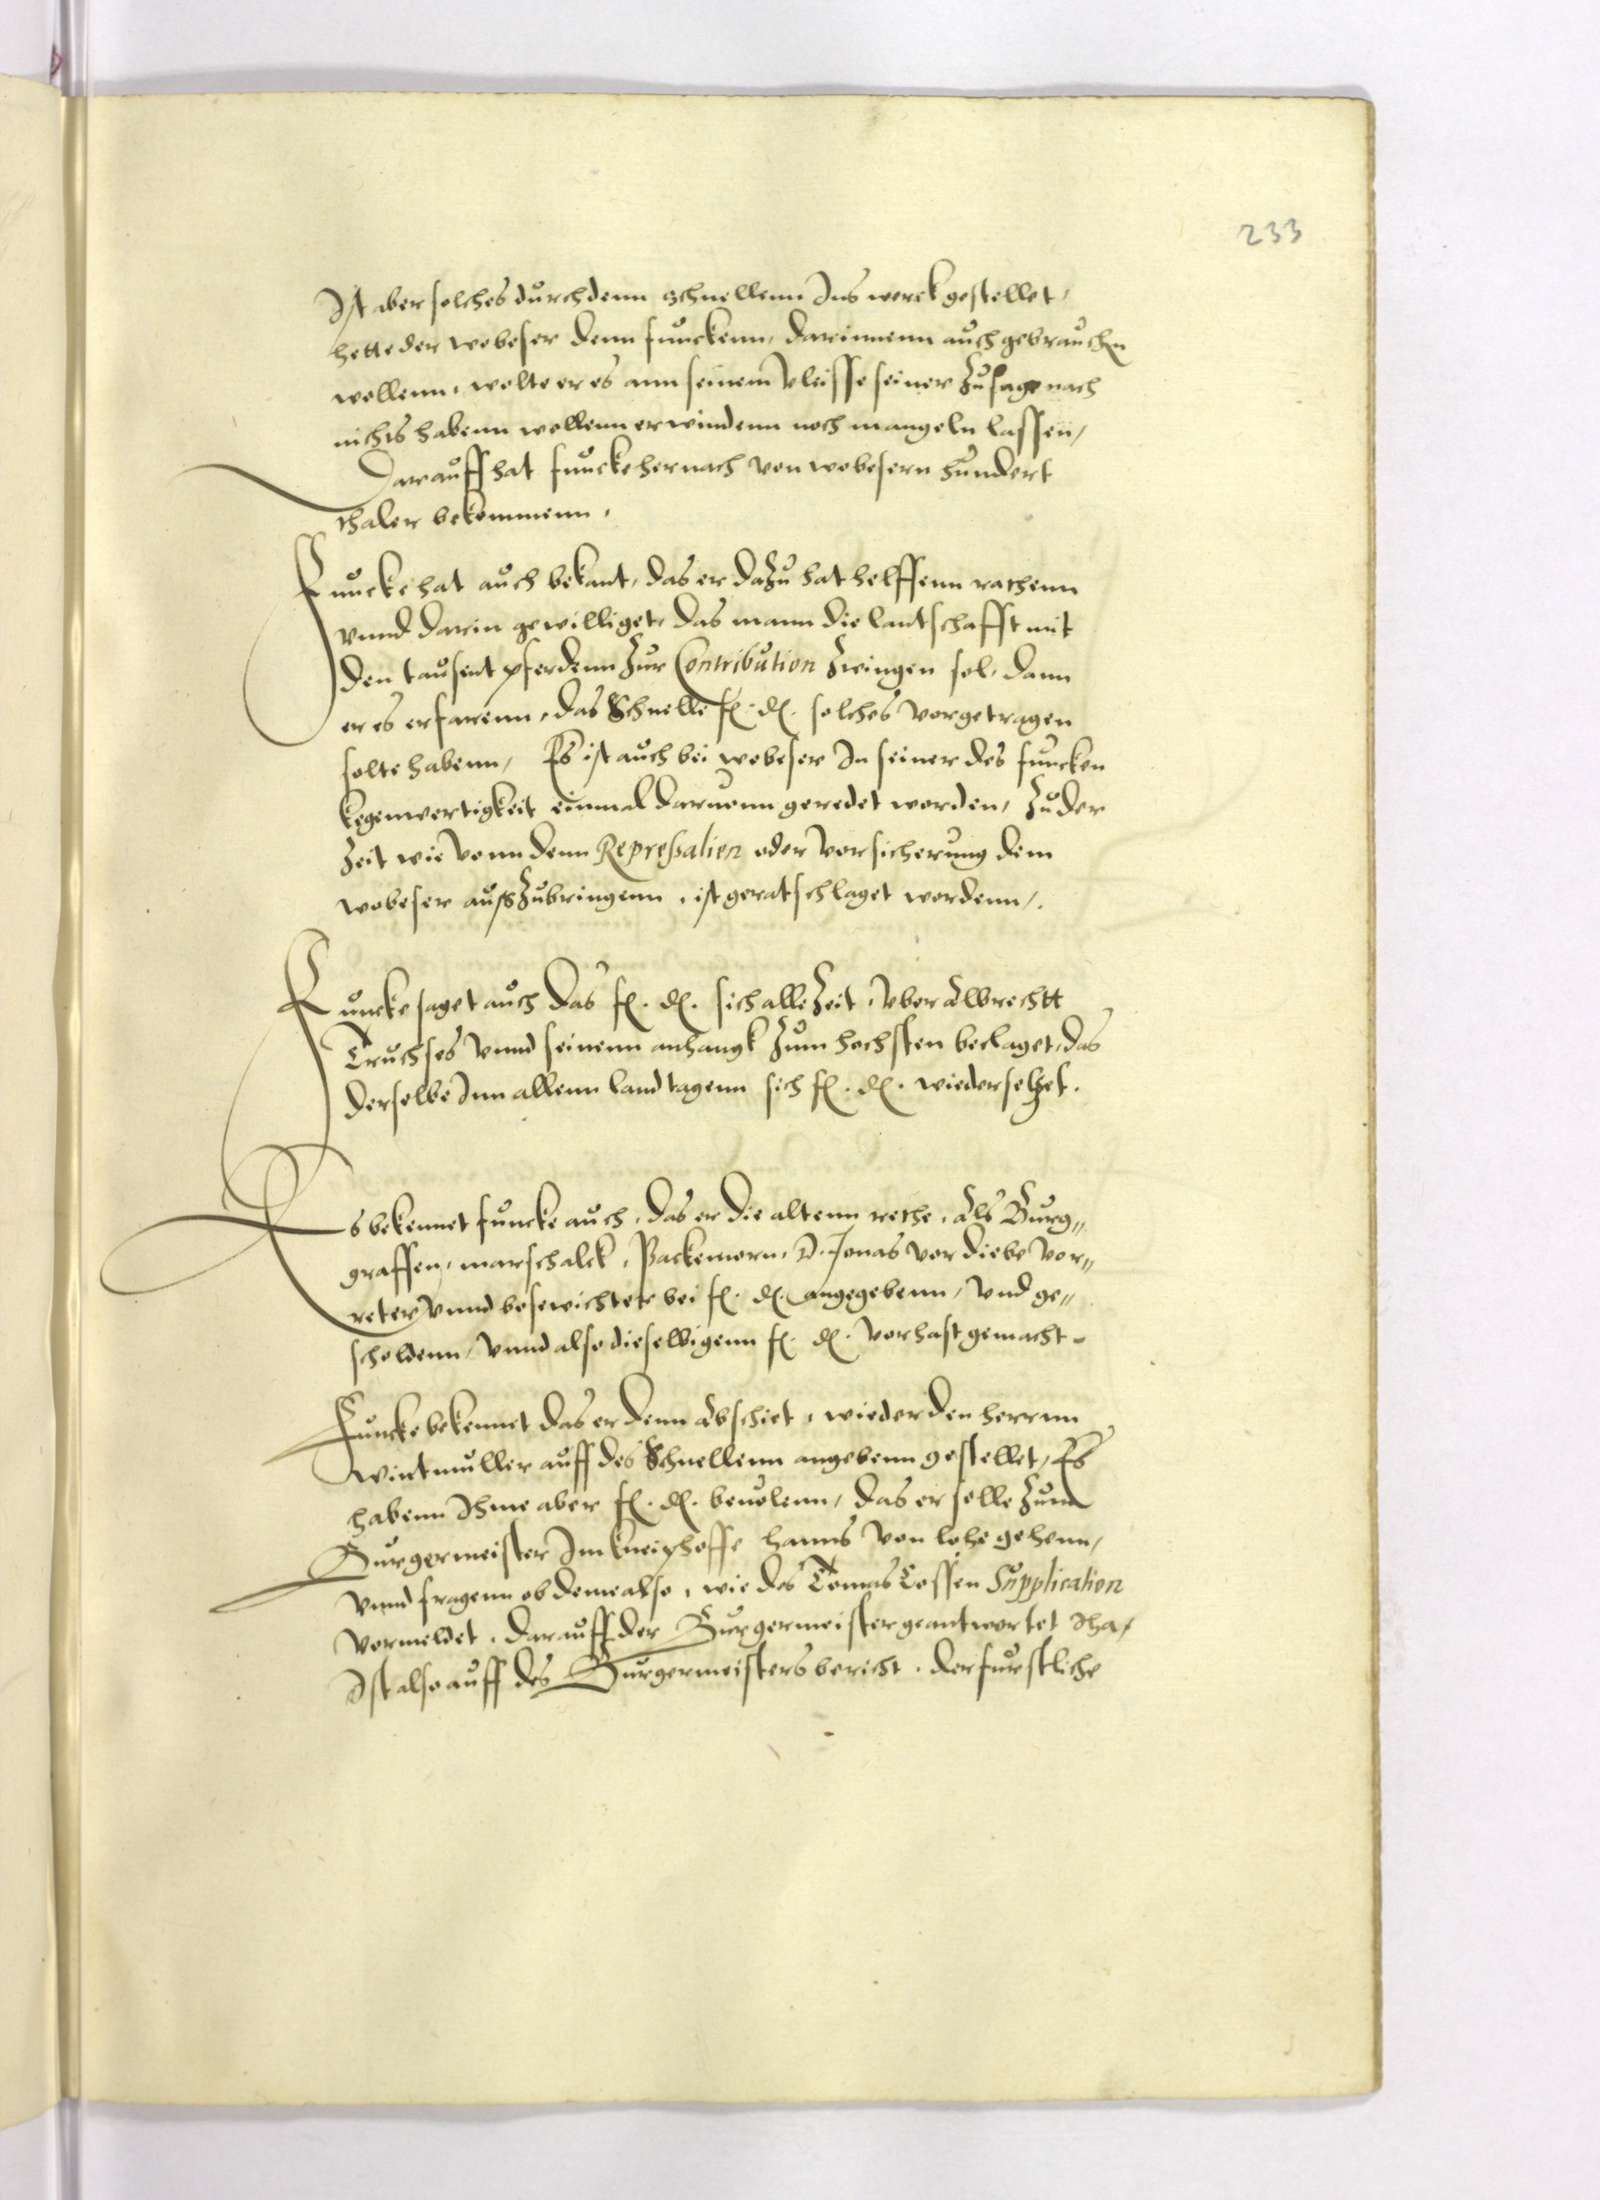 233
Ist aber solches durch denn Schnellenn Ins werck gestellet,
hette der wobeser denn funckenn, darinnenn auch gebrauchen
wollenn, wolte er es ann seinem vleisse seiner Zusage nach
nichts habenn wollenn erwindenn noch mangeln lassen,
Darauff hat funcke hernach von wobesern hundert
thaler bekommenn.
Funcke hat auch bekant, das er dazu hat helffenn rathenn
vnnd darin gewilliget, das mann die lantschafft mit
den tausent pferdenn Zur Contribution Zwingen sol, dann
er es erfarenn, das Schnelle f. d. solches vorgetragen
solte habenn, Es ist auch bei wobeser In seiner des funcken
kegenwertigkeit einmal daruonn geredet worden, Zu der
Zeit wie vonn denn Repressalien oder vorsicherung dem
wobeser auszZubringenn, ist geratschlaget wordenn,.
Funcke saget auch das f. d. sich alle Zeit, vber Albrechtt
Truchses vnnd seinenn anhangk Zum hochsten beclaget, das
derselbe Inn allenn landtagenn sich f. d. wiedersetzet.
Es bekennet funcke auch, das er die altenn rethe, Als Burg„
graffen, marschalck, Packemorn, D. Jonas vor diebe vor„
reter vnnd bosewichtere bei f. d. angegebenn, vnd ge„
scholdenn, vnnd also dieselbigenn f. d. vorhast gemacht.
Funcke bekennet das er denn Abschiet, wieder den herrnn
wintmuller auff des Schnellenn angebenn gestellet, Es
habenn Ihme aber f. d. beuolenn, das er solle Zum
Burgermeister Im kneiphoffe hanns von lohe gehenn,
vnnd fragenn ob deme also, wie des Tomas Cossen Supplication
vormeldet, darauff der Burgermeister geantwortet Iha,
Ist also auff des Burgermeisters bericht, der furstliche